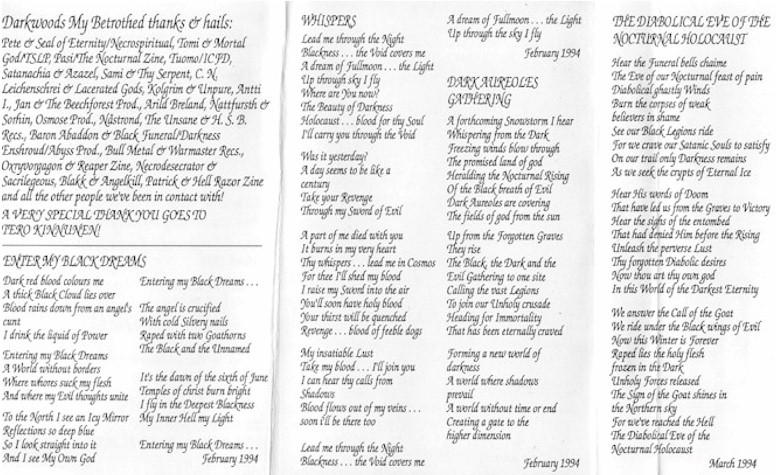 Darkwoods My Betrothed thanks & hails:
Pete & Seal of Eternity/Necrospiritual, Tomi & Mortal
God/TSLP, Pasi/The Nocturnal Zine, Tuomo/ICFD,
Satanachia & Azazel, Sami & Thy Serpent, C. N.
Leichenschrei & Lacerated Gods, Kolgrim & Unpure, Antti
I., Jan & The Beechforest Prod., Arild Breland, Nattfursth &
Sorhin, Osmose Prod., Nåstrond, The Unsane & H. S. B.
Recs., Baron Abaddon & Black Funeral/Darkness
Enshroud/Abyss Prod., Bull Metal & Warmaster Recs.,
Oxyvorgagon & Reaper Zine, Necrodesecrator &
Sacrilegeous, Blakk & Angelkill, Patrick & Hell Razor Zine
and all the other people we've been in contact with!
A VERY SPECIAL THANK YOU GOES TO
TERO KINNUNEN!
ENTER MY BLACK DREAMS
Dark red blood colours me
A thick Black Cloud lies over
Blood rains down from an angel's
cunt
I drink the liquid of Power
Entering my Black Dreams
A World without borders
Where whores suck my flesh
And where my Evil thoughts unite
To the North I see an Icy Mirror
Reflections so deep blue
So I look straight into it
And I see My Own God
Entering my Black Dreams . . .
The angel is crucified
With cold Silvery nails
Raped with two Goathorns
The Black and the Unnamed
It's the dawn of the sixth of June
Temples of christ burn bright
I fly in the Deepest Blackness
My Inner Hell my Light
Entering my Black Dreams . . .
February 1994
WHISPERS
Lead me through the Night
Blackness . . . the Void covers me
A dream of Fullmoon . . . the Light
Up through sky I fly
Where are You now?
The Beauty of Darkness
Holocaust . . . blood for thy Soul
I'll carry you through the Void
Was it yesterday?
A day seems to be like a
century
Take your Revenge
Through my Sword of Evil
A part of me died with you
It burns in my very heart
Thy whispers . . . lead me in Cosmos
For thee I'll shed my blood
I raise my Sword into the air
You'll soon have holy blood
Your thirst will be quenched
Revenge . . . blood of feeble dogs
My insatiable Lust
Take my blood . . . I'll join you
I can hear thy calls from
Shadows
Blood flows out of my veins . . .
soon i'll be there too
Lead me through the Night
Blackness . . . the Void covers me
A dream of Fullmoon . . . the Light
Up through the sky I fly
February 1994
DARK AUREOLES
GATHERING
A forthcoming Snowstorm I hear
Whispering from the Dark
Freezing winds blow through
The promised land of god
Heralding the Nocturnal Rising
Of the Black breath of Evil
Dark Aureoles are covering
The fields of god from the sun
Up from the Forgotten Graves
They rise
The Black, the Dark and the
Evil Gathering to one site
Calling the vast Legions
To join our Unholy crusade
Heading for Immortality
That has been eternally craved
Forming a new world of
darkness
A world where shadows
prevail
A world without time or end
Creating a gate to the
higher dimension
February 1994
THE DIABOLICAL EVE OF THE
NOCTURNAL HOLOCAUST
Hear the Funeral bells chaime
The Eve of our Nocturnal feast of pain
Diabolical ghastly Winds
Burn the corpses of weak
believers in shame
See our Black Legions ride
For we crave our Satanic Souls to satisfy
On our trail only Darkness remains
As we seek the crypts of Eternal Ice
Hear His words of Doom
That have led us from the Graves to Victory
Hear the sighs of the entombed
That had denied Him before the Rising
Unleash the perverse Lust
Thy forgotten Diabolic desires
Now thou art thy own god
In this World of the Darkest Eternity
We answer the Call of the Goat
We ride under the Black wings of Evil
Now this Winter is Forever
Raped lies the holy flesh
frozen in the Dark
Unholy Forces released
The Sign of the Goat shines in
the Northern sky
For we've reached the Hell
The Diabolical Eve of the
Nocturnal Holocaust
March 1994